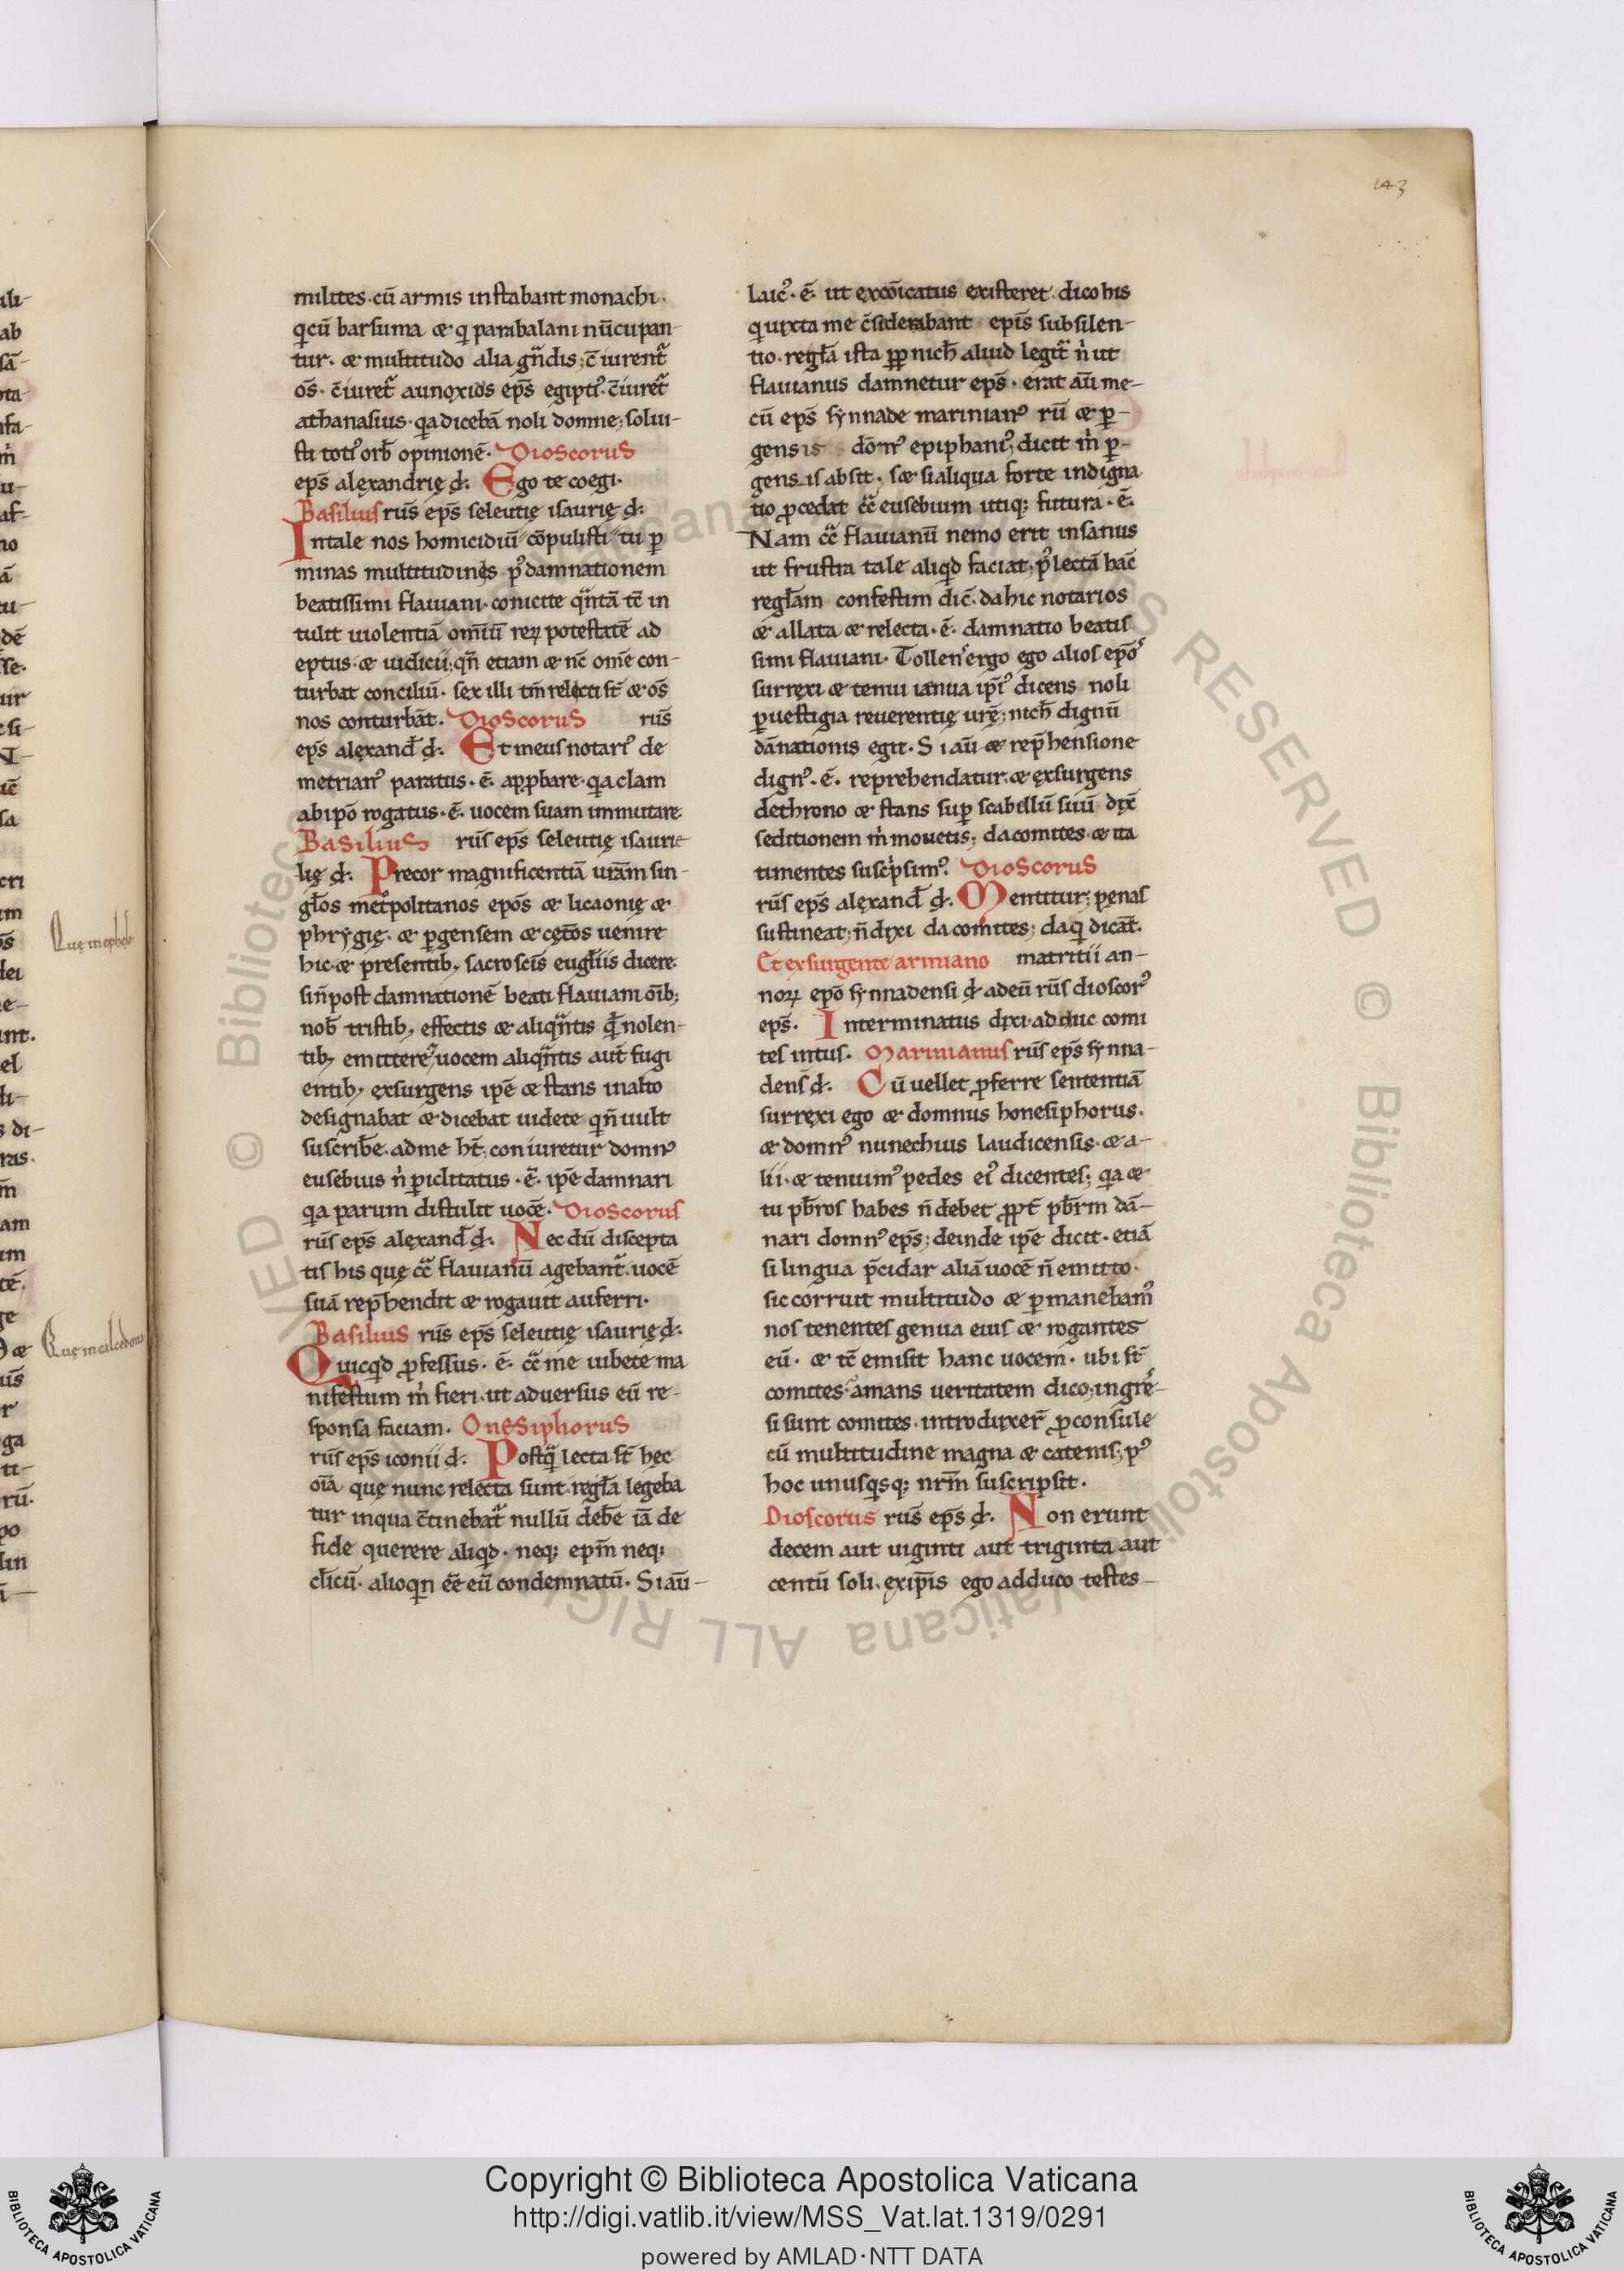 143
milites. cū armis instabant monachi.
q̄ cū barsuma & q̄ parabalani nūcupan-
tur. & multitudo alia gn̄dis; c̄iurent̄
os̄. c̄iuret̄ auxoxios ep̄s egipti᾿. c̄iuret̄
athanasius. q̄a dicebā noli domne; solui-
sti toti᾿ orb̄ opinionē. Dioscorus
ep̄s alęxandrię đ. Ego te coegi.
Basilius rūs ep̄s seleutię isaurię đ.
In tale nos homicidiū cōpulisti tu ꝑ
minas multitudinęs p᾿ damnationem
beatissimi flauiani. conicite qn̄tā tc̄ in
tulit uiolentiā omīū reꝝ potestatē ad
eptus. & uidicii; qn̄ etiam & nc̄ om̄e con-
turbat conciliū. sex illi tm̄ relicti st̄ & os̄
nos conturbāt. Dioscorus rūs
ep̄s alęxand̄ đ. Et meus notari᾿ de
metrian᾿ paratus. ē. appbare. q̄a clam
ab ipō rogatus. ē. uocem suam immutare.
Basilius rūs ep̄s seleutię isaurie
lię đ. Precor magnificentiā urām sin-
gl̄os met᾿politanos epōs & licaonię &
phrygię. & ꝑgensem & cęt̄os uenire
hic. & presentib; sacro scīs eugl̄iis dicere.
sin̄ post damnationē beati flauiani oīb;
nob̄ tristib; effectis & aliqn̄tis q̄d nolen-
tib; emittere uocem aliqn̄tis aut̄ fugi
entib; exsurgens ipē & stans in alto
designabat & dicebat uidete qn̄ uult
suscrib̄e. ad me ht̄; coniuretur domn᾿
eusebius n̄ ꝑiclitatus. ē. ipē damnari
q̄a parum distulit uocē. Dioscorus
rūs ep̄s alęxand̄ đ. Nec dū discepta
tis his quę cc̄ flauianū agebant̄. uocē
suā rep̄hendit & rogauit auferri.
Basilius rūs ep̄s seleutię isaurię đ.
Quicq̄d ꝓfessus. ē. cc̄ me iubete ma
nifestum m̄ fieri. ut aduersus eū re-
sponsa faciam. Onesiphorus
rūs ep̄s iconii đ. Postq̄ lecta st̄ hęc
oīa quę nunc relecta sunt. regl̄a legeba
tur in qua c̄tinebat̄ nullū deb̄e iā de
fide querere aliq̄d. neq; ep̄m neq;
cl̄icū. alioqn ēē eū condemnatū. Si aū-
laic᾿. ē. ut excōicatus existeret. dico his
q iuxta me c̄siderabant ep̄is sub silen-
tio. regl̄a ista ꝓp nich̄ aliud legit̄ n̄ ut
flauianus damnetur ep̄s. erat aū me-
cū ep̄s synnade marinian᾿ rū & ꝑ-
gensis domn᾿ epiphani᾿; dicit m̄ ꝑ-
gens is absit; s& si aliqua forte indigna
tio ꝓcedat cc̄ eusebium utiq; futura. ē.
Nam cc̄ flauianū nemo erit insanus
ut frustra tale aliq̄d faciat; p᾿ lectā hāc
regl̄am confestim dic̄. da hic notarios
& allata & relecta. ē. damnatio beatis
simi flauiani. Tollens ergo ego alios epōs
surręxi & tenui ianua ipi᾿ dicens noli
ꝑ uestigia reuerentię urę; nich̄ dignū
dānationis egit. Si aū & rep̄hensione
dign᾿. ē. reprehendatur. & ęxsurgens
de throno & stans suꝑ scabellū suū dixē
seditionem m̄ mouetis; da comites. & ita
timentes suscripsim᾿. Dioscorus
rūs ep̄s alęxand̄ đ. Mentitur; pęnas
sustineat; n̄ dixi da comites; da q dicat̄.
Et exsurgente arniano matritii an-
noꝝ epō synnadensi đ ad eū rūs dioscor᾿
ep̄s. Interminatus dixi. adduc comi
tes intus. Marinianus rūs ep̄s synna-
dens̄ đ. Cū uellet ꝓferre sententiā
surręxi ego & domnus honesiphorus.
& domn᾿ nunechius laudicensis. & a-
lii. & tenuim᾿ pedes ei᾿ dicentes; q̄a &
tu pb̄ros habes n̄ debet ꝓpt̄ pb̄rm dā-
nari domn᾿ ep̄s; deinde ipē dicit. etiā
si lingua p̄cidar aliā uocē n̄ emitto.
sic corruit multitudo & ꝑmanebam᾿
nos tenentes genua eius & rogantes
eū. & tc̄ emisit hanc uocem. ubi st̄
comites. amans ueritatem dico; ingre-
si sunt comites. introduxer̄ ꝓconsule
cū multitudine magna & catenis; p᾿
hoc unusq̄sq; nr̄m suscripsit.
Dioscorus rūs ep̄s đ. Non erunt
decem aut uiginti aut triginta aut
centū soli. exip̄is ego adduco testes-
Copyright © Biblioteca Apostolica Vaticana
http://digi.vatlib.it/view/MSS_Vat.lat.1319/0291
powered by AMLAD·NTT DATA